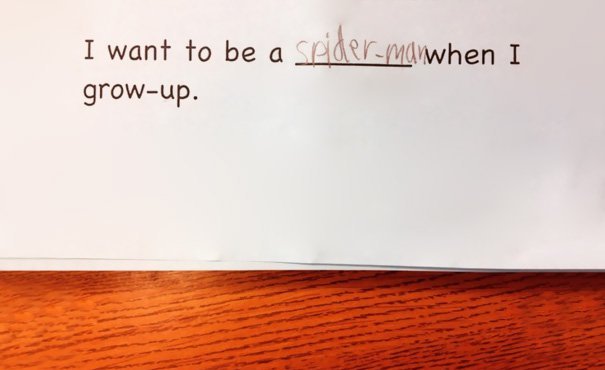 I want to be a spider-man when I
grow-up.